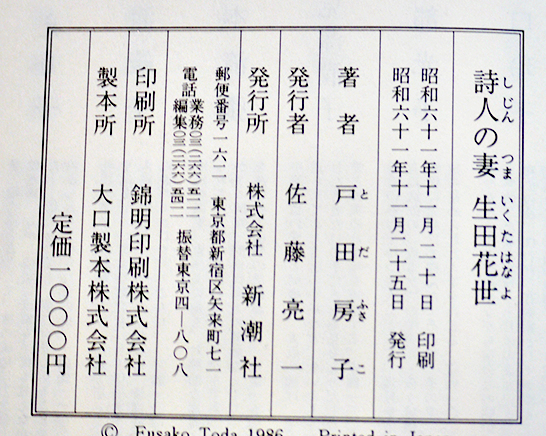 詩人の妻 生田花世
しじん つま いくた はなよ
昭和六十一年十一月二十日 印刷
昭和六十一年十一月二十五日 発行
著者 戸田房子
とだ ふさこ
発行者 佐藤亮一
発行所 株式会社 新潮社
郵便番号一六二 東京都新宿区矢来町七一
電話 業務〇三(二六六)五一一一
編集〇三(二六六)五四一一 振替東京四—八〇八
印刷所 錦明印刷株式会社
製本所 大口製本株式会社
定価一〇〇〇円
© Fusako Toda 1986 Printed in